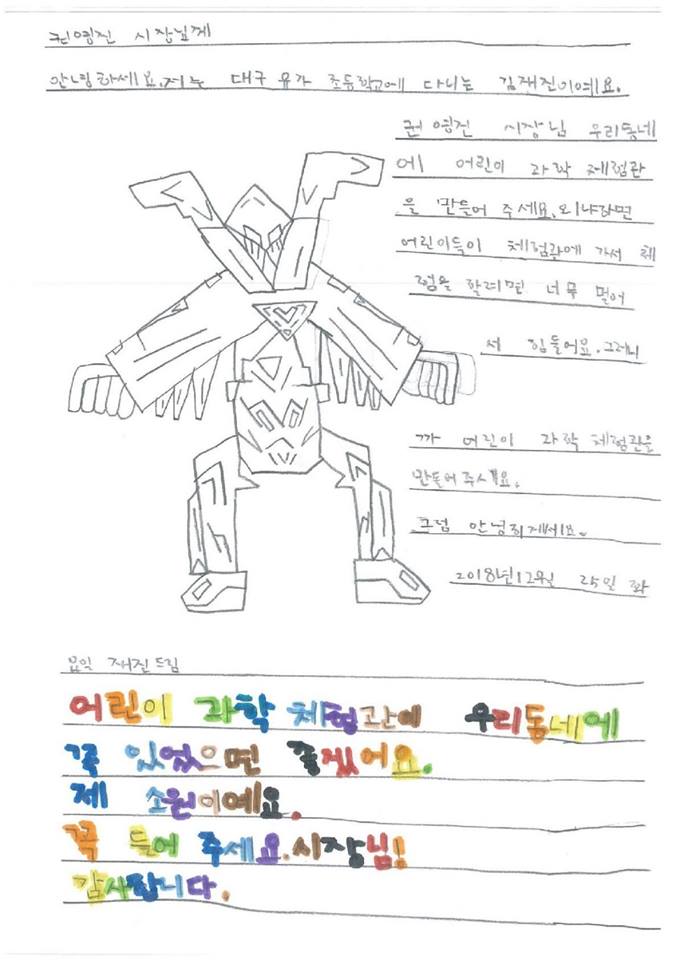 권영진 시장님께
안녕하세요.저는 대구 유가 초등학교에 다니는 김재진이예요.
권영진 시장님 우리동네
에 어린이 과학 체험관
을 만들어 주세요.왜냐하면
어린이들이 체험관에 가서 체
험을 할려면 너무 멀어
서 힘들어요.그러니
까 어린이 과학 체험관을
만들어주세요.
그럼 안녕히계세요.
2018년12월 25일 화
요일 재진드림
어린이 과학 체험관이 우리동네에
꼭 있었으면 좋겠어요.
제 소원이예요.
꼭 들어 주세요.시장님!
감사합니다.